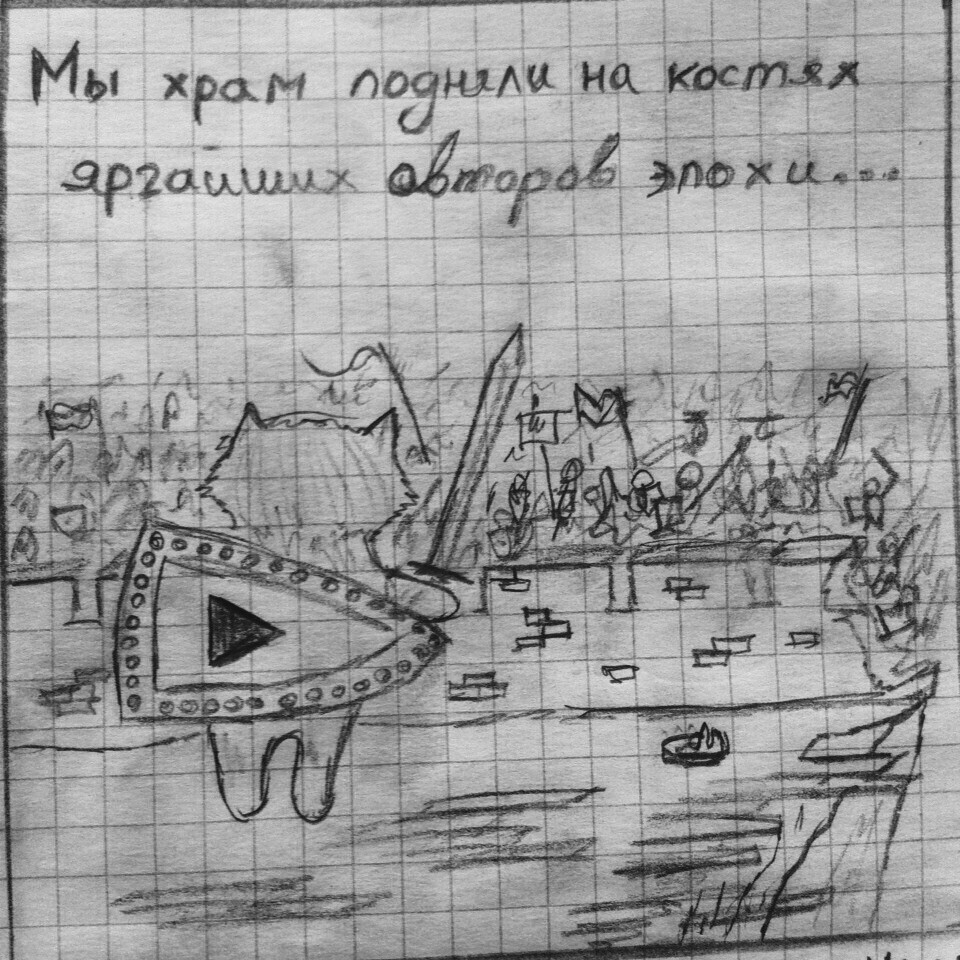 Мы храм подняли на костях
яргайших авторов эпохи...